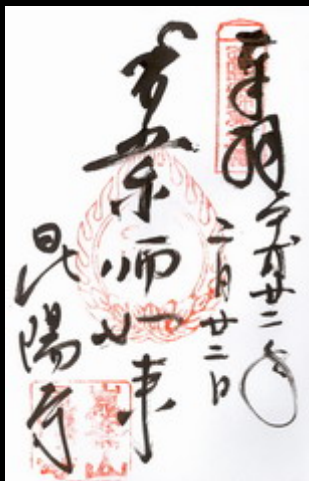 奉拝
平成廿二年
二月廿二日
薬師如来
昆陽寺